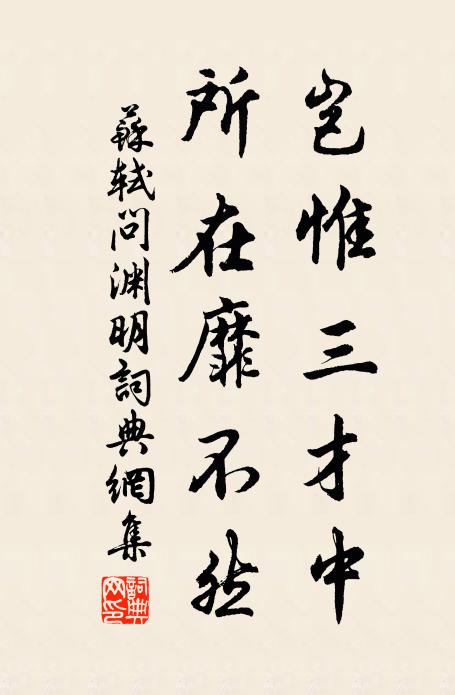 豈惟三才中
所在靡不然
蘇軾問淵明詞典網集
詞典網印